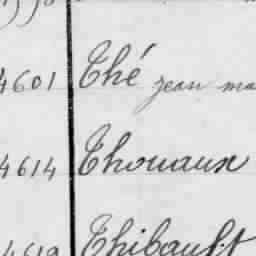 4601 Thé jean ma
4614 Thouaux
4619 Thibault